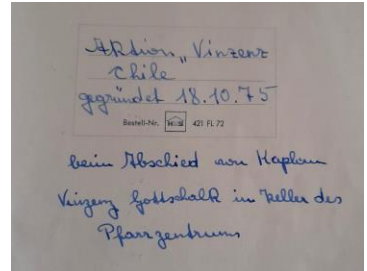 Aktion „Vinzenz
Chile
gegründet 18.10.75
Bestell-Nr. H&S 421 FL 72
beim Abschied von Kaplan
Vinzenz Gottschalk im Keller des
Pfarrzentrums